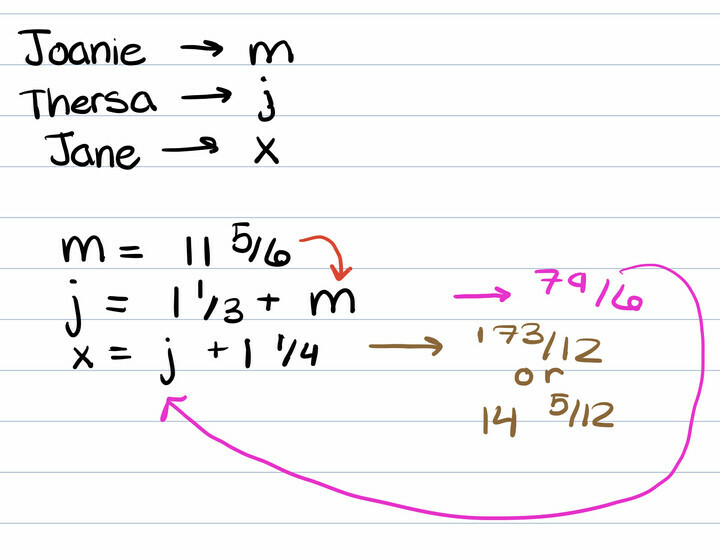 Joanie → m
Thersa → j
Jane → x
m = 11 5/6
j = 1 1/3 + m → 79/6
x = j + 1 1/4 → 173/12
or
14 5/12